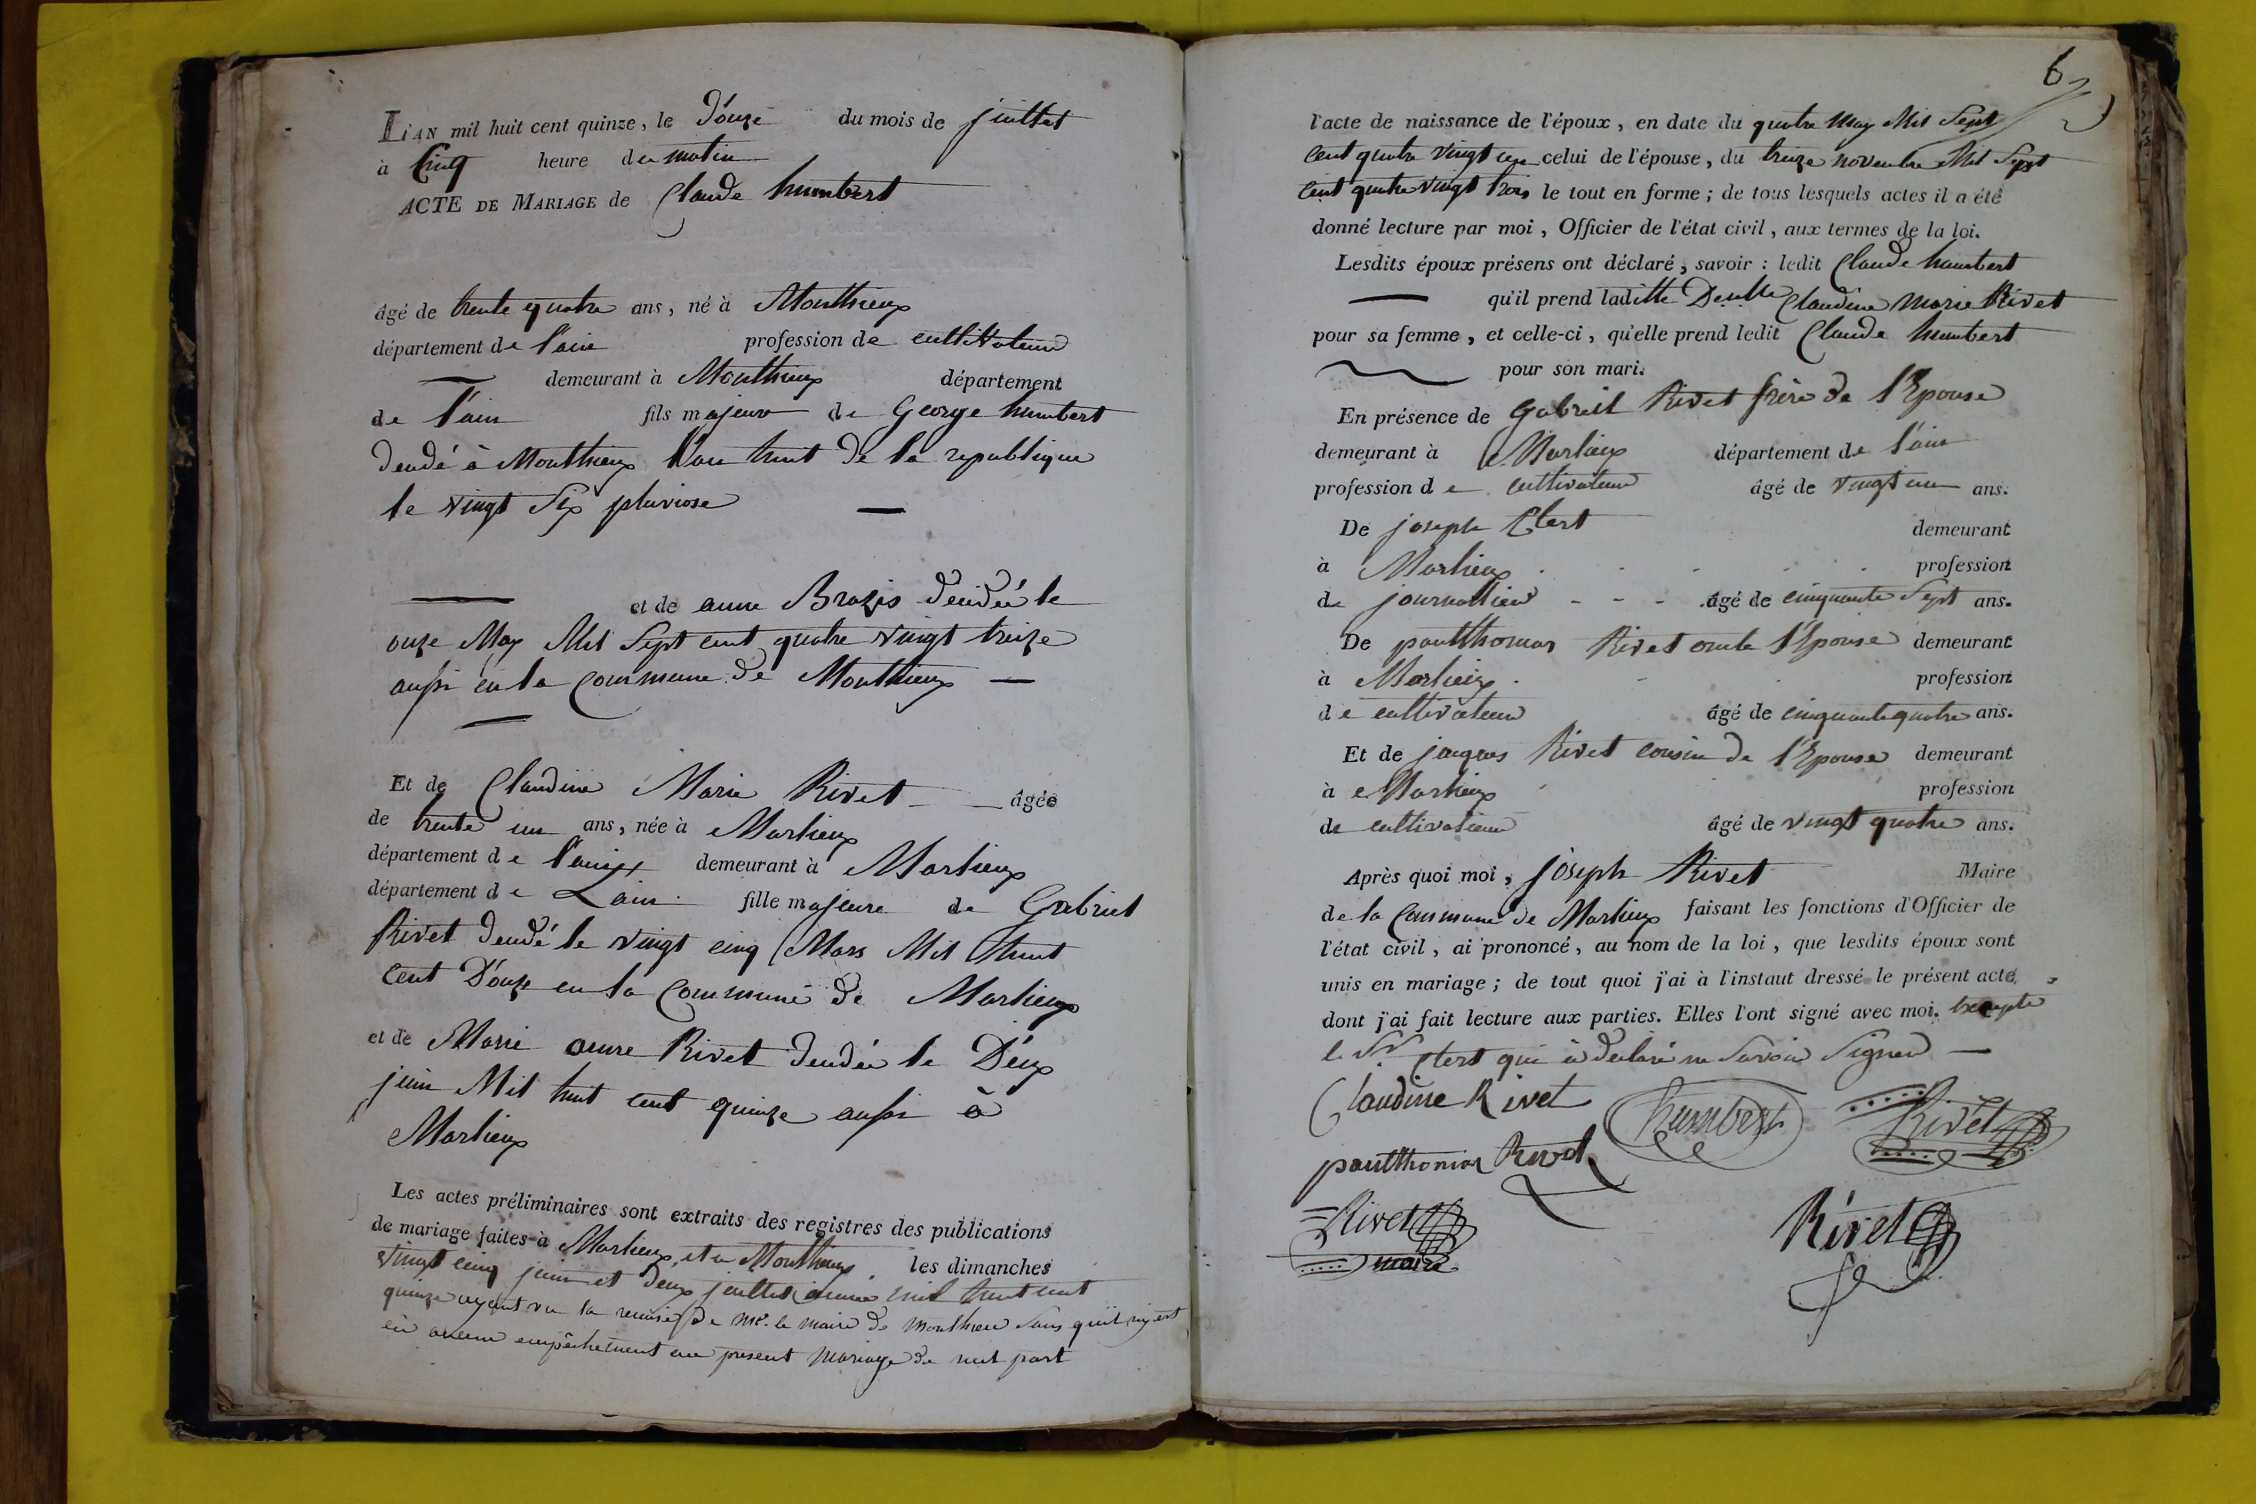 L'AN mil huit cent quinze, le Douze du mois de juillet
à Cinq heure du matin
ACTE DE MARIAGE de Claude humbert
âgé de trente quatre ans, né à Monthieux
département de l'ain profession de cultivateur
demeurant à Monthieux département
de l'ain fils majeur de George humbert
decedé à Monthieux l'an huit de la republique
le vingt Six pluviose
et de anne Brazis decedée le
onze May Mil Sept cent quatre vingt treize
aussi en la Commune de Monthieux
Et de Claudine Marie Rivet âgée
de trente un ans, née à Marlieux
département de l'ain demeurant à Marlieux
département de Lain fille majeure de Gabriel
Rivet decedé le vingt cinq Mars Mil huit
cent Douze en la Commune de Marlieux
et de Marie anne Rivet decedée le Deux
juin Mil huit cent quinze aussi à
Marlieux
Les actes préliminaires sont extraits des registres des publications
de mariage faites à Marlieux et a Monthieux les dimanches
vingt cinq juin et deux juillet année mil huit cent
quinze ayant vu la remise de Mr. le maire de Monthieu Sans qu'il n'y est
eu aucun empêchement au present Mariage de nul part
6
l'acte de naissance de l'époux, en date du quatre May Mil Sept
cent quatre vingt un celui de l'épouse, du treize novembre Mil Sept
Cent quatre vingt trois le tout en forme; de tous lesquels actes il a été
donné lecture par moi, Officier de l'état civil, aux termes de la loi.
Lesdits époux présens ont déclaré, savoir : ledit Claude humbert
qu'il prend laditte Delle Claudine Marie Rivet
pour sa femme, et celle-ci, qu'elle prend ledit Claude humbert
pour son mari.
En présence de Gabriel Rivet frère de l'Epouse
demeurant à Marlieux département de l'ain
profession de cultivateur âgé de vingt un ans.
De joseph Clert demeurant
à Marlieux profession
de journallier âgé de cinquante Sept ans.
De paulthomas Rivet oncle l'Epouse demeurant
à Marlieux profession
de cultivateur âgé de cinquante quatre ans.
Et de jacques Rivet cousin de l'Epouse demeurant
à Marlieux profession
de cultivateur âgé de vingt quatre ans.
Après quoi moi, joseph Rivet Maire
de la Commune de Marlieux faisant les fonctions d'Officier de
l'état civil, ai prononcé, au nom de la loi, que lesdits époux sont
unis en mariage; de tout quoi j'ai à l'instant dressé le présent acte,
dont j'ai fait lecture aux parties. Elles l'ont signé avec moi. Excepte
le Sr Clert qui a declaré ne Savoir Signer
Claudine Rivet humbert Rivet
paulthomas Rivet
Rivet Rivet
maire